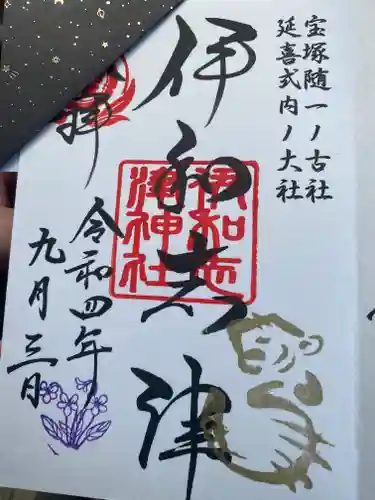 宝塚随一ノ古社
延喜式内ノ大社
伊和志津
伊和志
津神社
拝
令和四年
九月三日